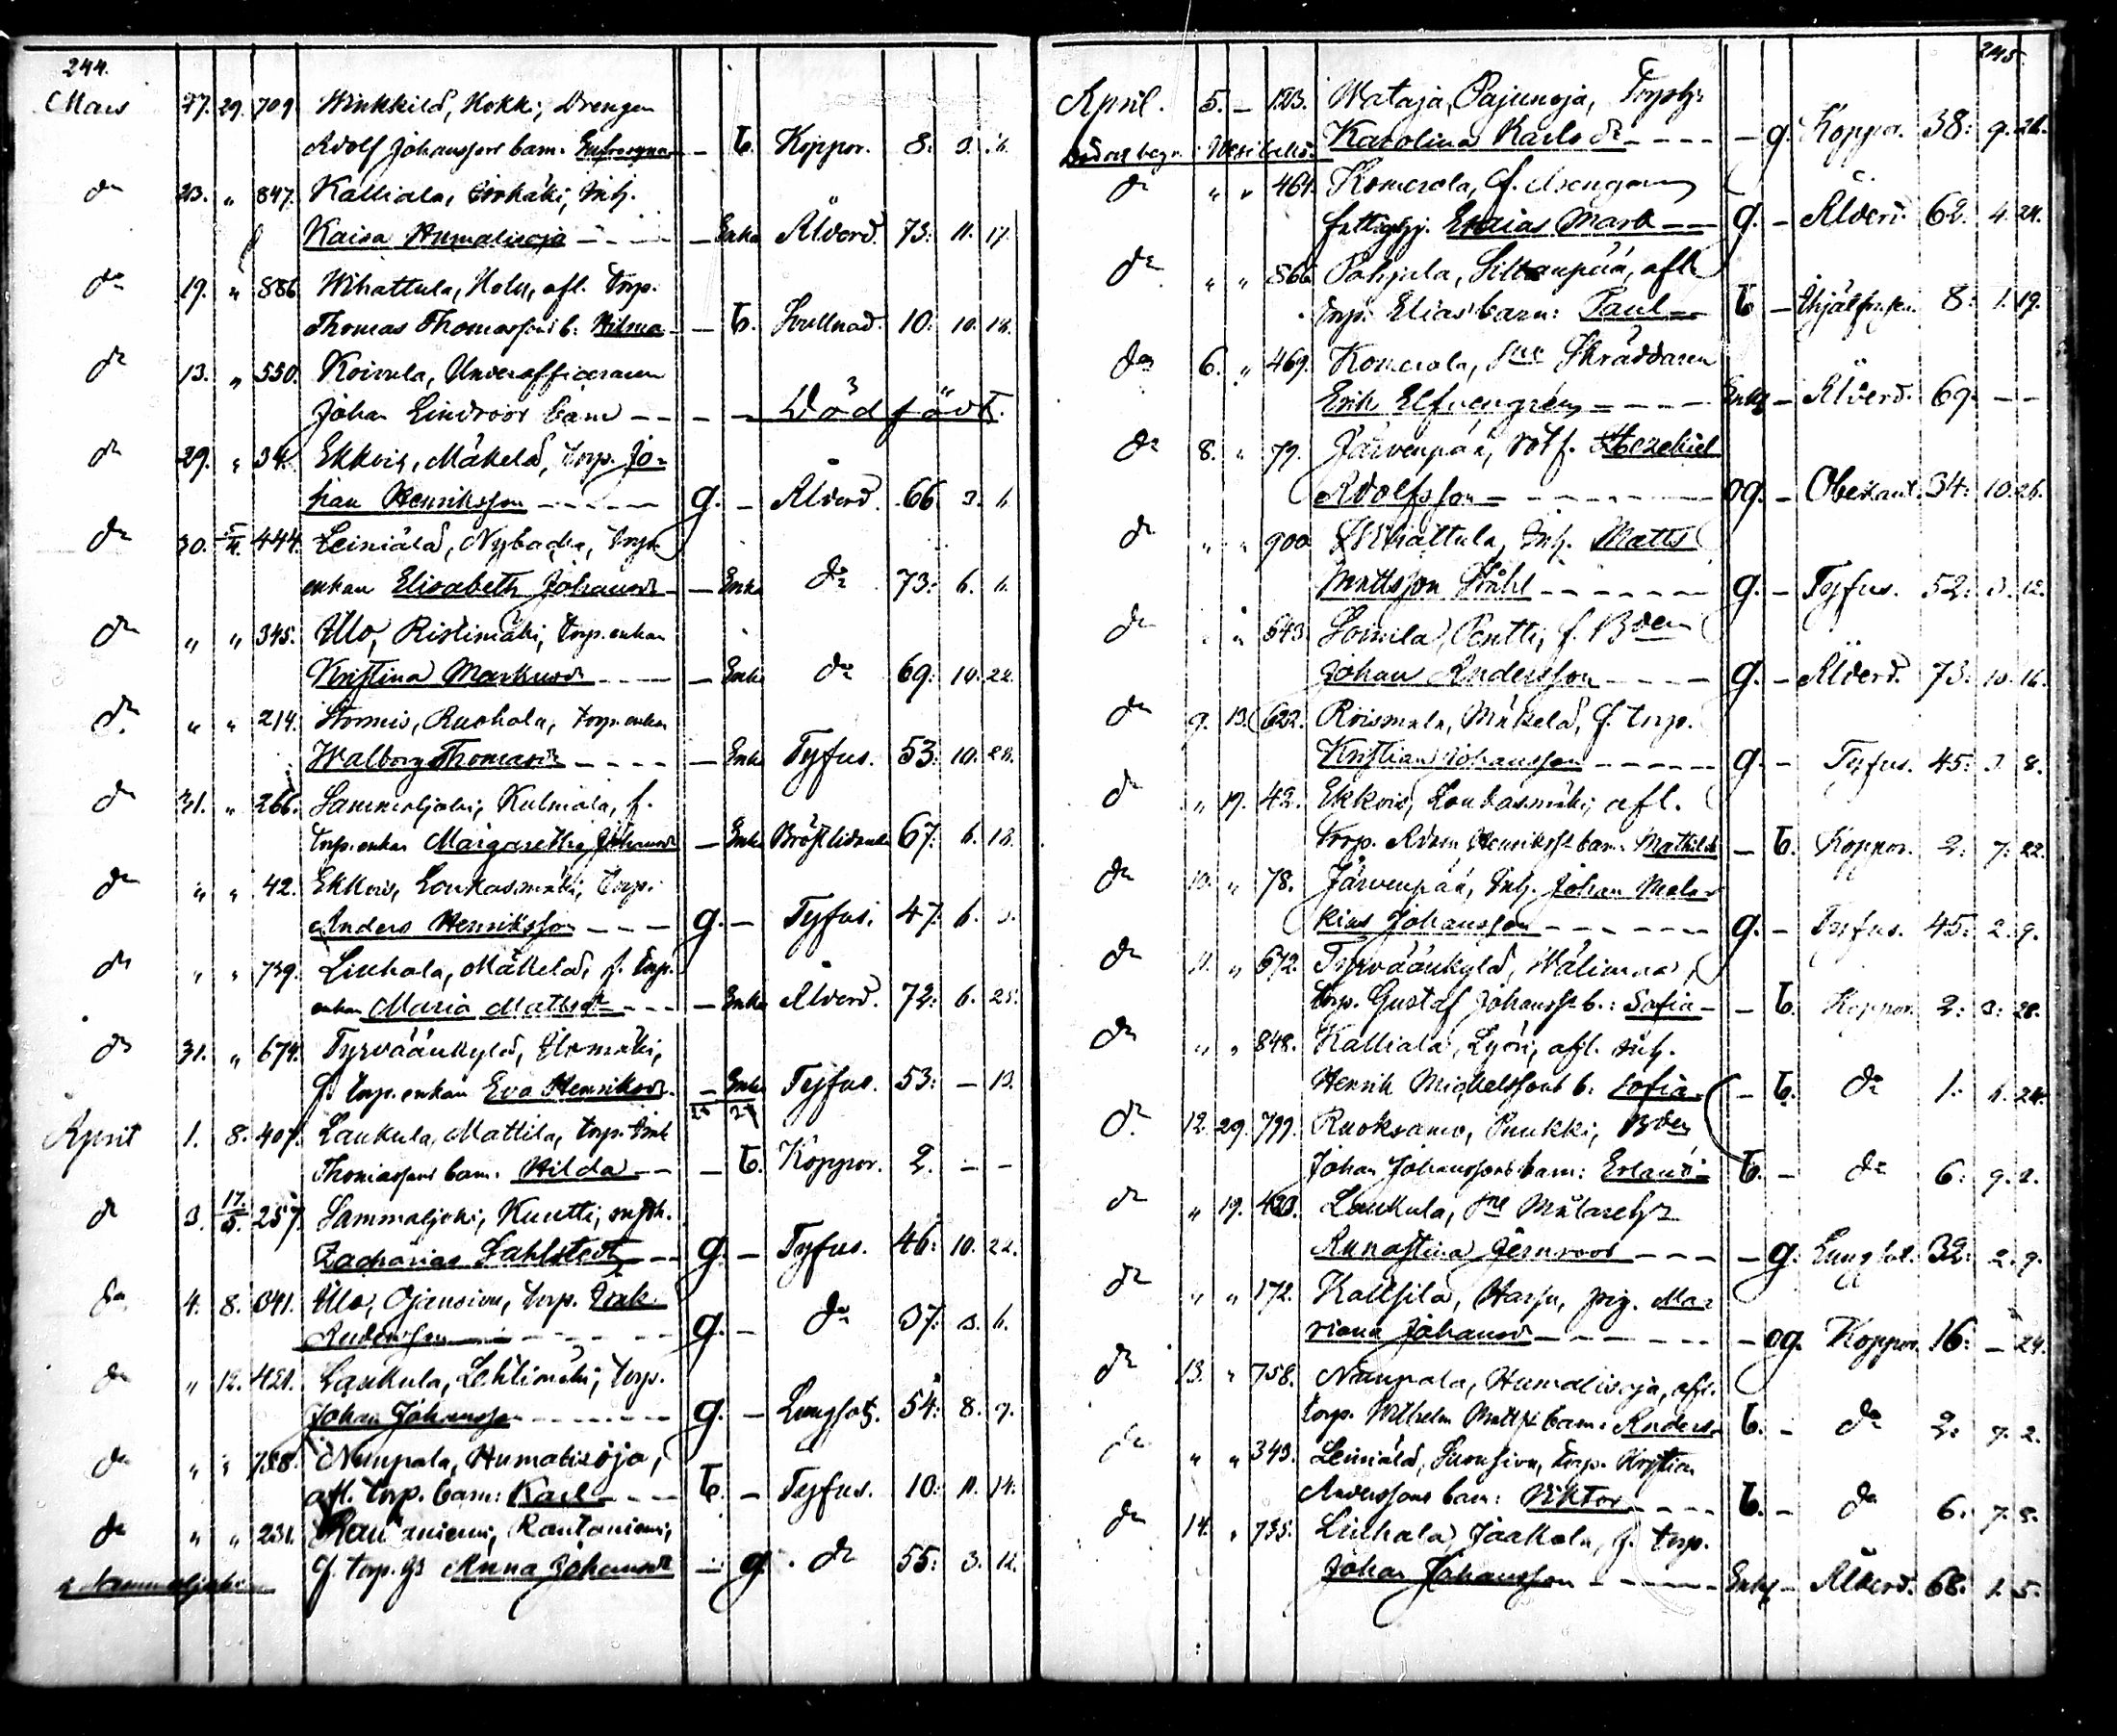 244.
Mars 27. 29. 709. Winkkilä, Kokki, Drengen
Adolf Johanssons barn. – b. Koppor. 8. 3.
do 23. " 847. Kalliala, Inh.
Kaisa Humalisoja – Enka Ålderd. 73: 11. 17.
do 19. " 886 Wihattula, afl. torp.
Thomas Thomassons b. Hilma – b. Svullnad. 10: 10. 18.
do 13. " 550. Koivula, Underofficeraren
Johan Lindroos barn – – – Dödfödt.
do 29. " 34. Ekkois, Mäkelä, torp. Jo-
han Henriksson – g. – Ålderd. 66 3.
do 30. 444. Leiniälä, Nybacka, torp.
enkan Elisabeth Johansdr – Enka do 73: 6.
do " " 345. Ulo, Ristimäki, torp. enkan
Kristina Markusdr – Enka do 69: 10. 22.
do " " 214. Stormis, Ruohola, torp. enkan
Walborg Thomasdr – Enka Tyfus. 53: 10. 28.
do 31. " 266. Sammaljoki, Kulmala, f.
torp. enkan Margaretha Johansdr – Enka Bröstlidande 67: 6. 18.
do " " 42. Ekkois, Loukasmäki, torp.
Anders Henriksson – g. – Tyfus. 47: 6. 3.
do " " 739. Liuhala, Mäkelä, f. torp.
enkan Maria Mattsdr – Enka Ålderd. 72: 6. 25.
do 31. " 674. Tyrväänkylä, Ulomäki,
f. torp. enkan Eva Henriksdr. – Enka Tyfus. 53: – 13.
April 1. 8. 407. Laukula, Mattila, torp. Erik
Thomassons barn. Hilda – – b. Koppor. 2. – –
do 3. 17/5. 257. Sammaljoki, Kuutti,
Zacharias Dahlstedt – g. – Tyfus. 46: 10. 22.
do 4. 8. 341. Ulo, Ojansivu, torp. Erik
Andersson – g. – do 37: 3. 6.
do " 12. 421. Laukula, Lehtimäki, torp.
Johan Johansson – g. – Lungsot. 54: 8. 9.
do " " 758. Nuupala, Humalisoja,
afl. torp. barn: Karl – b. – Tyfus. 10: 11. 14.
do " " 231. Rautaniemi, Rautaniemi,
f. torp. h. Anna Johansdr – g. do 55: 3. 12.
i Sammaljoki
245.
April. 5. – 123. Wataja, Pajunoja,
Karolina Karlsdr – g. Koppor. 38: 9. 26.
do " " 464. Komerola, f. drengen
fattighj. Esaias Markz – g. – Ålderd. 62: 4. 24.
do " " 866 Pohjala, Siltanpää, afl.
torp. Elias barn: Paul – b – 8: 1. 19.
do 6. " 469. Komerola, Skräddaren
Erik Elfvengren – Enkl – Ålderd. 69. – –
do 8. " 79. Järvenpää, rotf. Hezekiel
Adolfsson – og. – Obekant. 34: 10. 26.
do " " 900 Wihattula, Inh. Matts
Mattsson Ståhl – g. – Tyfus. 52: 3. 12.
do " 643 Soinila, Pentti, f. Bden
Johan Andersson – g. – Ålderd. 73: 10. 16.
do 9. 13. 622. Roismala, Mäkelä, f. torp.
Kristian Johansson – g. – Tyfus. 45: 3. 8.
do " 19. 42. Ekkois, Loukasmäki, afl.
torp. Adam Henrikss. barn. Mathilda – b. Koppor. 2: 7. 22.
do 10. " 78. Järvenpää, Inh. Johan Mala-
kias Johansson – g. – Tyfus. 45: 2. 9.
do 11. " 672. Tyrväänkylä, Wälimaa,
torp. Gustaf Johanss. b.: Sofia – – b. Koppor. 2: 3. 28.
do " " 848. Kalliala, Lyöri, afl. inh.
Henrik Michelssons b: Sofia – – b. do 1: 24.
do 12. 29. 799. Ruoksamo, Puukki, Bden
Johan Johanssons barn: Erland – b. – do 6: 9. 2.
do " 19. 420. Laukula,
Annastina Jernroos – – g. Lungsot. 32: 2. 9.
do " " 172. Kallsila, Harju, pig. Ma-
riana Johansdr – og. Koppor. 16: – 24.
do 13. " 758. Nuupala, Humalisoja, afl.
torp. Wilhelm Matts. barn: Anders. b. – do 2: 7. 2.
do " " 343. Leiniälä, torp. Kristian
Anderssons barn: Viktor – b. – do 6. 7. 8.
do 14. " 735. Liuhala, Jaakola, f. torp.
Johan Johansson – Enkl – Ålderd. 68. 1. 5.